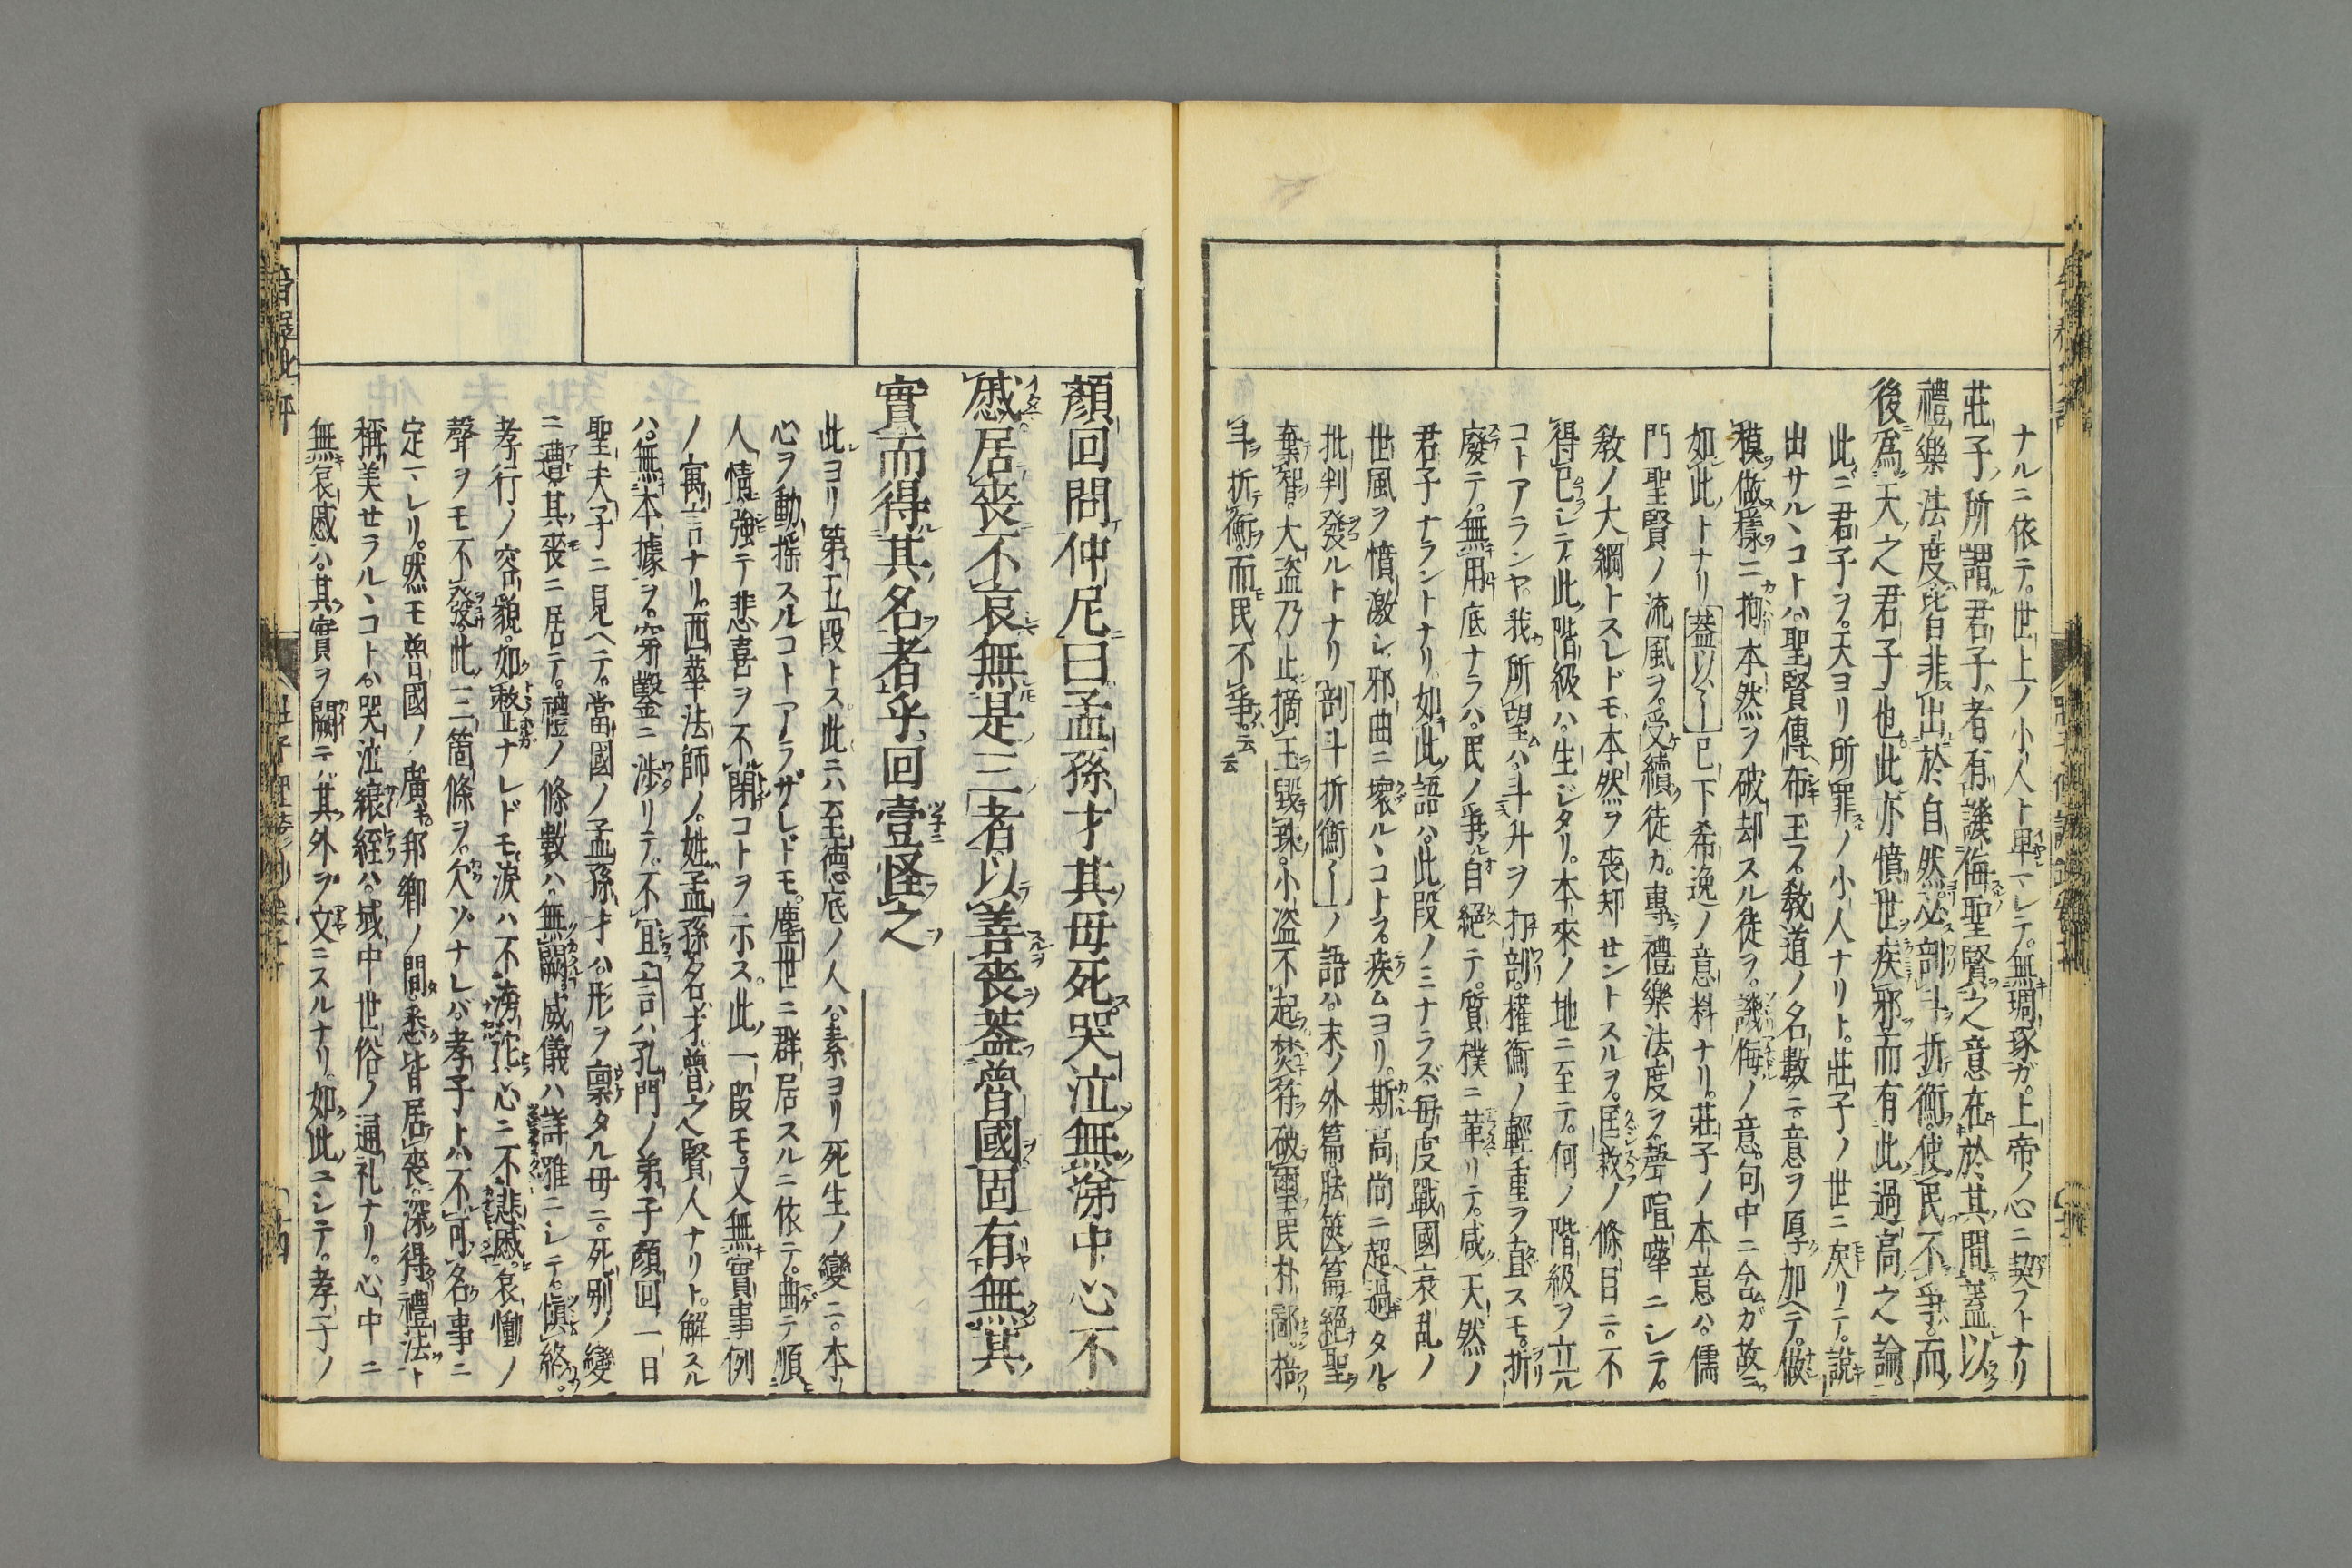 ナルニ依テ。世上ノ小人ト卑マレテ。無琱琢ガ。上帝ノ心ニ契フトナリ
莊子所謂君子者有譏侮聖賢之意在於其間蓋以
禮樂法度皆非出於自然必剖斗折衡。使民不爭。而
後爲天之君子也此亦憤世疾邪而有此過高之論
此ニ君子ヲ。天ヨリ所罪ノ小人ナリト。莊子ノ世ニ戾リテ。說
出サル丶コトハ。聖賢傳布玉フ敎道ノ名數ニ。意ヲ厚加ヘテ。做
模做樣ニ拘本然ヲ破却スル徒ヲ。譏侮ノ意。句中ニ含ムガ故ニ
如此トナリ蓋以〱已下希逸ノ意料ナリ。莊子ノ本意ハ。儒
門聖賢ノ流風ヲ。受續徒カ。專禮樂法度ヲ聲喧嘩ニシテ。
敎ノ大綱トスレドモ。本然ヲ喪却セントスルヲ。匡救ノ條目ニ。不
得已シテ。此階級ハ。生ジタリ。本來ノ地ニ至テ。何ノ階級ヲ立ル
コトアランヤ。我所望ハ。斗升ヲ打剖。權衡ノ輕重ヲ直スモ。折
廢テ。無用底ナラハ。民ノ爭自絕テ。質樸ニ革リテ。咸天然ノ
君子ナラントナリ。如此語ハ。此段ノミナラズ。每度戰國衰乱ノ
世風ヲ憤激シ。邪曲ニ壞ル丶コトヲ。疾ムヨリ。斯高尚ニ超過タル。
批判發ルトナリ剖斗折衡〱ノ語ハ。末ノ外篇胠篋篇絕聖
棄智。大盗乃止擿玉毀珠。小盗不起焚符破璽民朴鄙掊
斗折衡而民不爭。云云
顏回問仲尼曰孟孫才其母死哭泣無涕中心不
慼居喪不哀無是三者以善喪蓋魯國固有無其
實而得其名者乎回壹怪之
此ヨリ第五段トス。此ニハ至德底ノ人ハ。素ヨリ死生ノ變ニ。本
心ヲ動揺スルコトアラザレドモ。塵世ニ群居スルニ依テ。曲テ順
人情強テ悲喜ヲ不閉コトヲ示ス。此一段モ。又無實事例
ノ寓言ナリ。西華法師ノ。姓孟孫名才魯之賢人ナリト。解スル
ハ。無本據ヲ。穿鑿ニ渉リテ。不宜言ハ孔門ノ弟子顏回一日
聖夫子ニ見ヘテ。當國ノ孟孫才ハ。形ヲ稟タル母ニ。死別ノ變
ニ遭其喪ニ居テ。禮ノ條數ハ。無闕威儀ハ詳雅ニシテ。愼終。
孝行ノ容貌。如整ナレドモ。淚ハ不滂沱心ニ不悲慼。哀慟ノ
聲ヲモ不發。此三箇條ヲ。欠ツナレバ。孝子トハ不可名事ニ
定マレリ。然モ魯國ノ廣キ。邦鄕ノ間。悉皆居喪深得禮法ト
稱美セラル丶コトハ。哭泣縗絰ハ。域中世俗ノ通礼ナリ。心中ニ
無哀慼ハ。其實ヲ闕ニ。其外ヲ文ニスルナリ。如此ニシテ。孝子ノ